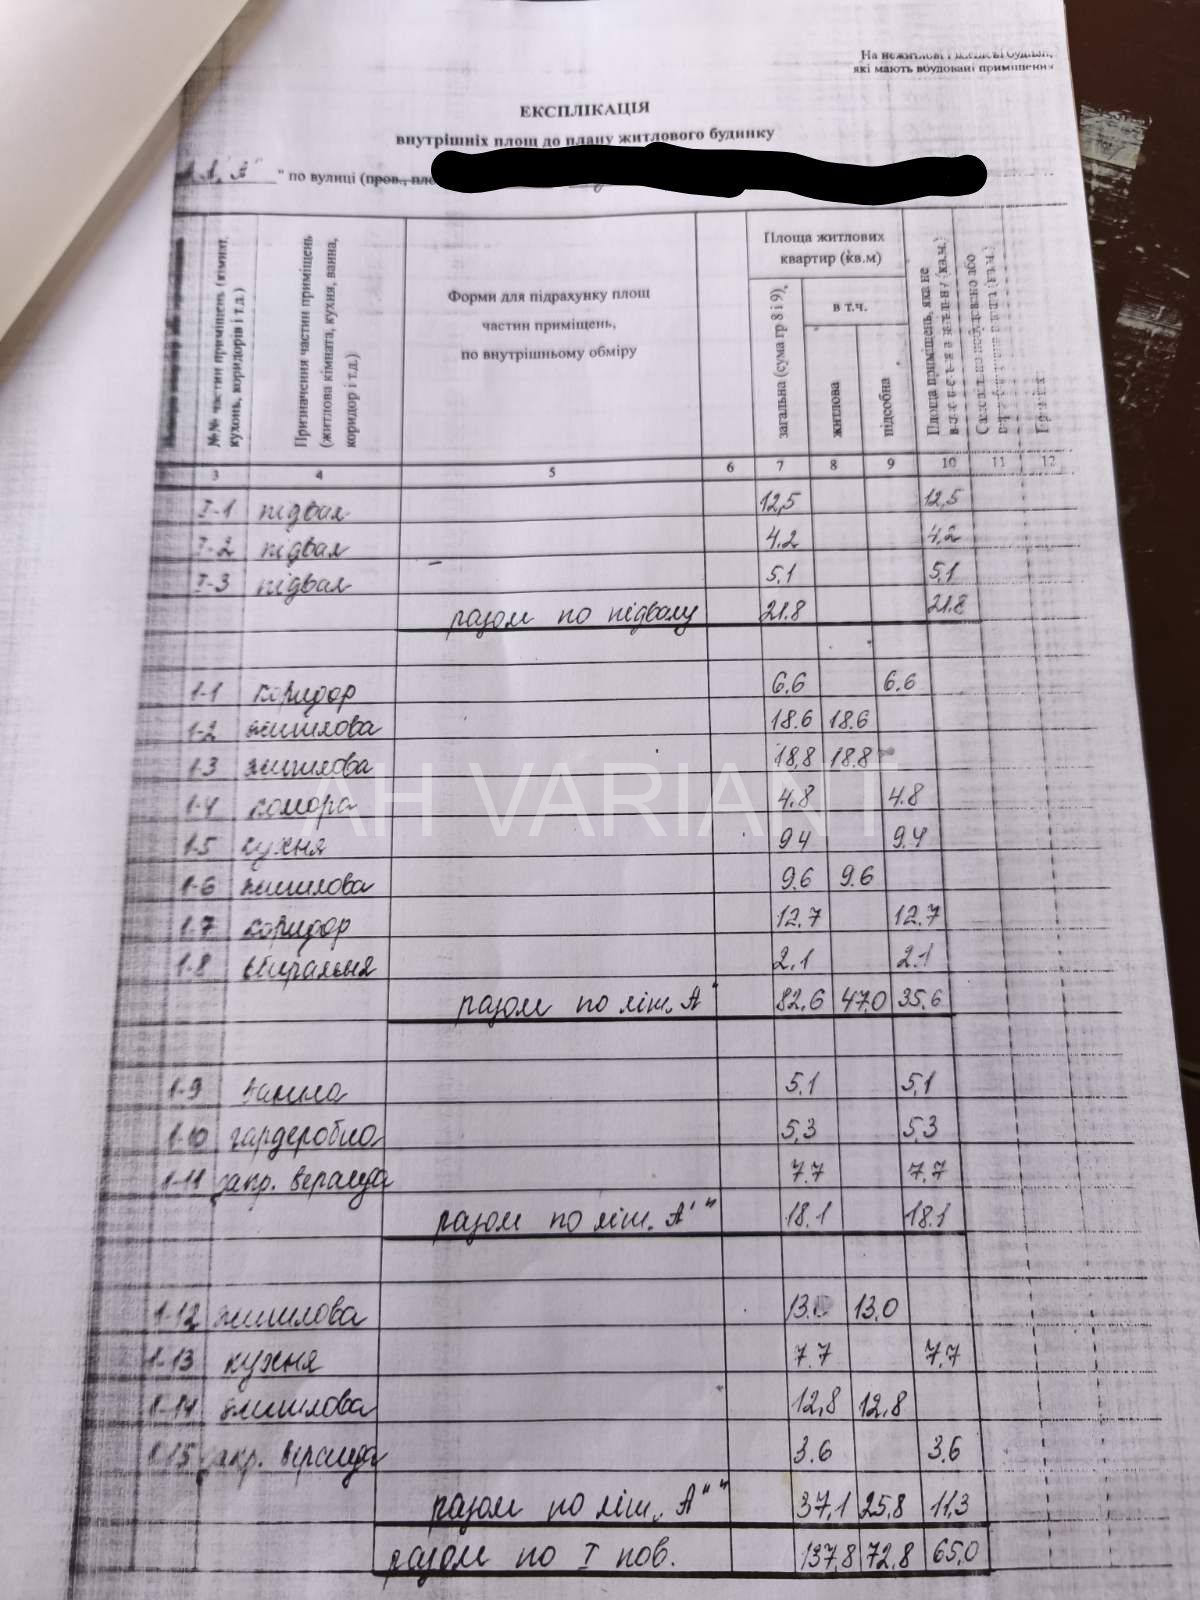 На нежитлові і
які мають вбудовані приміщення
ЕКСПЛІКАЦІЯ
внутрішніх площ до плану житлового будинку
" по вулиці (пров., пло
№№ частин приміщень (кімнат, кухонь, коридорів і т.д.)
Призначення частин приміщень (житлова кімната, кухня, ванна, коридор і т.д.)
Форми для підрахунку площ
частин приміщень,
по внутрішньому обміру
Площа житлових
квартир (кв.м)
загальна (сума гр 8 і 9),
в т.ч.
житлова
підсобна
Площа приміщень, яка не
3 4 5 6 7 8 9 10 11 12
I-1 підвал 12,5 12,5
I-2 підвал 4,2 4,2
I-3 підвал 5,1 5,1
разом по підвалу 21.8 21.8
1-1 коридор 6.6 6.6
1-2 житлова 18.6 18.6
1-3 житлова 18,8 18.8
1-4 комора 4.8 4.8
AH VARIANT
1-5 кухня 9.4 9.4
1-6 житлова 9.6 9.6
1-7 коридор 12.7 12.7
1-8 вбиральня 2.1 2.1
разом по літ. А" 82.6 47.0 35.6
1-9 ванна 5.1 5,1
1-10 гардеробна 5,3 5,3
1-11 закр. веранда 7.7 7,7
разом по літ. А' " 18.1 18.1
1-12 житлова 13.0 13,0
1-13 кухня 7.7 7,7
1-14 житлова 12,8 12,8
1-15 закр. веранда 3.6 3,6
разом по літ. А" " 37,1 25,8 11,3
разом по I пов. 137,8 72,8 65,0